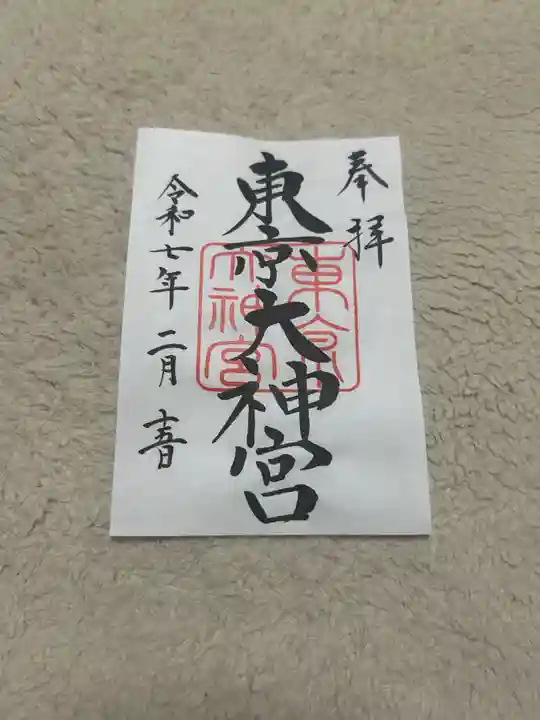 奉拝
東京大神宮
東京大神宮
令和七年二月十五日